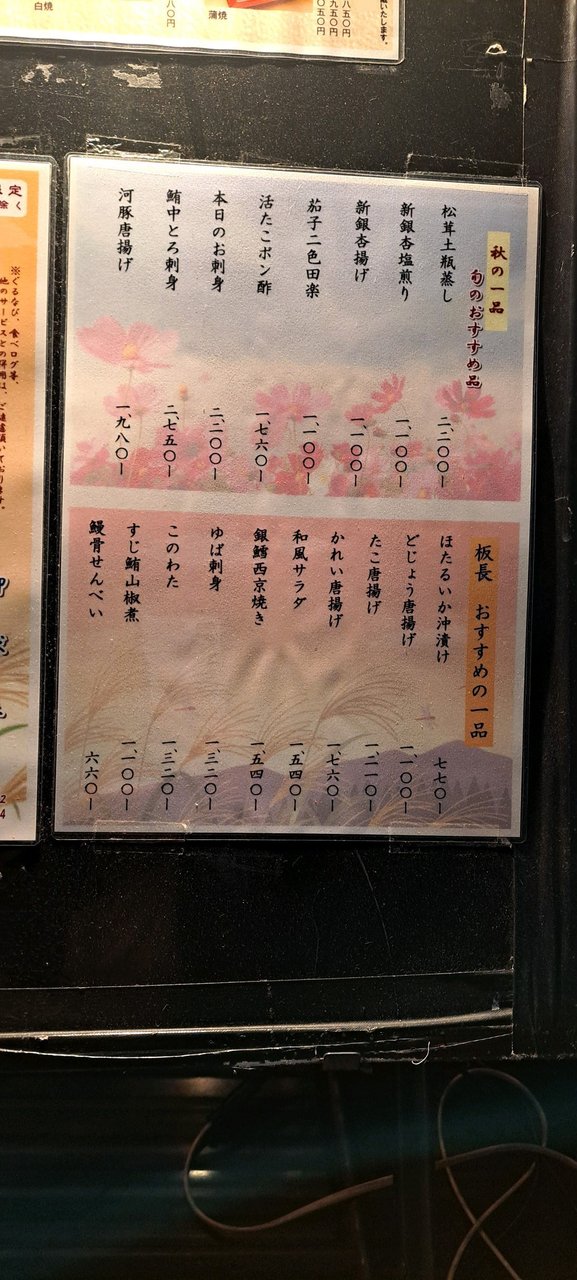 白焼
八〇円
蒲焼
八五〇円
九五〇円
〇五〇円
致いたします。
秋の一品
旬のおすすめ品
松茸土瓶蒸し 二、二〇〇ー
新銀杏塩煎り 一、一〇〇ー
新銀杏揚げ 一、一〇〇ー
茄子二色田楽 一、一〇〇ー
活たこポン酢 一、七六〇ー
本日のお刺身 二、二〇〇ー
鮪中とろ刺身 二、七五〇ー
河豚唐揚げ 一、九八〇ー
板長 おすすめの一品
ほたるいか沖漬け 七七〇ー
どじょう唐揚げ 一、一〇〇ー
たこ唐揚げ 一、二一〇ー
かれい唐揚げ 一、七六〇ー
和風サラダ 一、五四〇ー
銀鱈西京焼き 一、五四〇ー
ゆば刺身 一、三二〇ー
このわた 一、三二〇ー
すじ鮪山椒煮 一、一〇〇ー
鰻骨せんべい 六六〇ー
定
除く
※ぐるなび、食べログ等、
他のサービスとの併用は、ご遠慮頂いております。